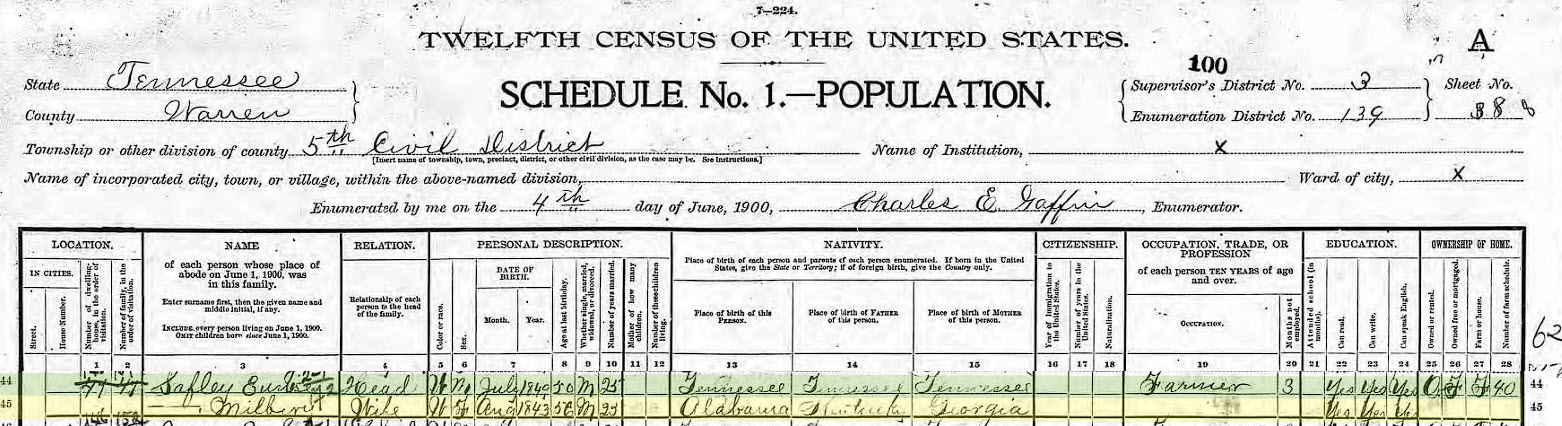 7—224.
TWELFTH CENSUS OF THE UNITED STATES.
A
100
State Tennessee
SCHEDULE No. 1.—POPULATION.
Supervisor's District No. 3
Sheet No.
County Warren
Enumeration District No. 139
8
Township or other division of county 5th Civil District
Name of Institution, X
[Insert name of township, town, precinct, district, or other civil division, as the case may be. See instructions.]
Name of incorporated city, town, or village, within the above-named division,
Ward of city, X
Enumerated by me on the 4th day of June, 1900, Charles E. Gaffin, Enumerator.
LOCATION.
IN CITIES.
Street.
House Number.
Number of dwelling-house, in the order of visitation.
Number of family, in the order of visitation.
NAME
of each person whose place of abode on June 1, 1900, was in this family.
Enter surname first, then the given name and middle initial, if any.
INCLUDE every person living on June 1, 1900.
OMIT children born since June 1, 1900.
RELATION.
Relationship of each person to the head of the family.
PERSONAL DESCRIPTION.
Color or race.
Sex.
DATE OF BIRTH.
Month.
Year.
Age at last birthday.
Whether single, married, widowed, or divorced.
Number of years married.
Mother of how many children.
Number of these children living.
NATIVITY.
Place of birth of each person and parents of each person enumerated. If born in the United States, give the State or Territory; if of foreign birth, give the Country only.
Place of birth of this PERSON.
Place of birth of FATHER of this person.
Place of birth of MOTHER of this person.
CITIZENSHIP.
Year of immigration to the United States.
Number of years in the United States.
Naturalization.
OCCUPATION, TRADE, OR PROFESSION
of each person TEN YEARS of age and over.
OCCUPATION.
Months not employed.
EDUCATION.
Attended school (in months).
Can read.
Can write.
Can speak English.
OWNERSHIP OF HOME.
Owned or rented.
Owned free or mortgaged.
Farm or house.
Number of farm schedule.
62
1 2 3 4 5 6 7 8 9 10 11 12 13 14 15 16 17 18 19 20 21 22 23 24 25 26 27 28
44 Safley Head W M July 50 M 25 Tennessee Tennessee Tennessee Farmer 3 Yes Yes Yes O F F 40 44
45 — Wife W F Aug 1843 56 M 25 Alabama Georgia Yes Yes Yes 45